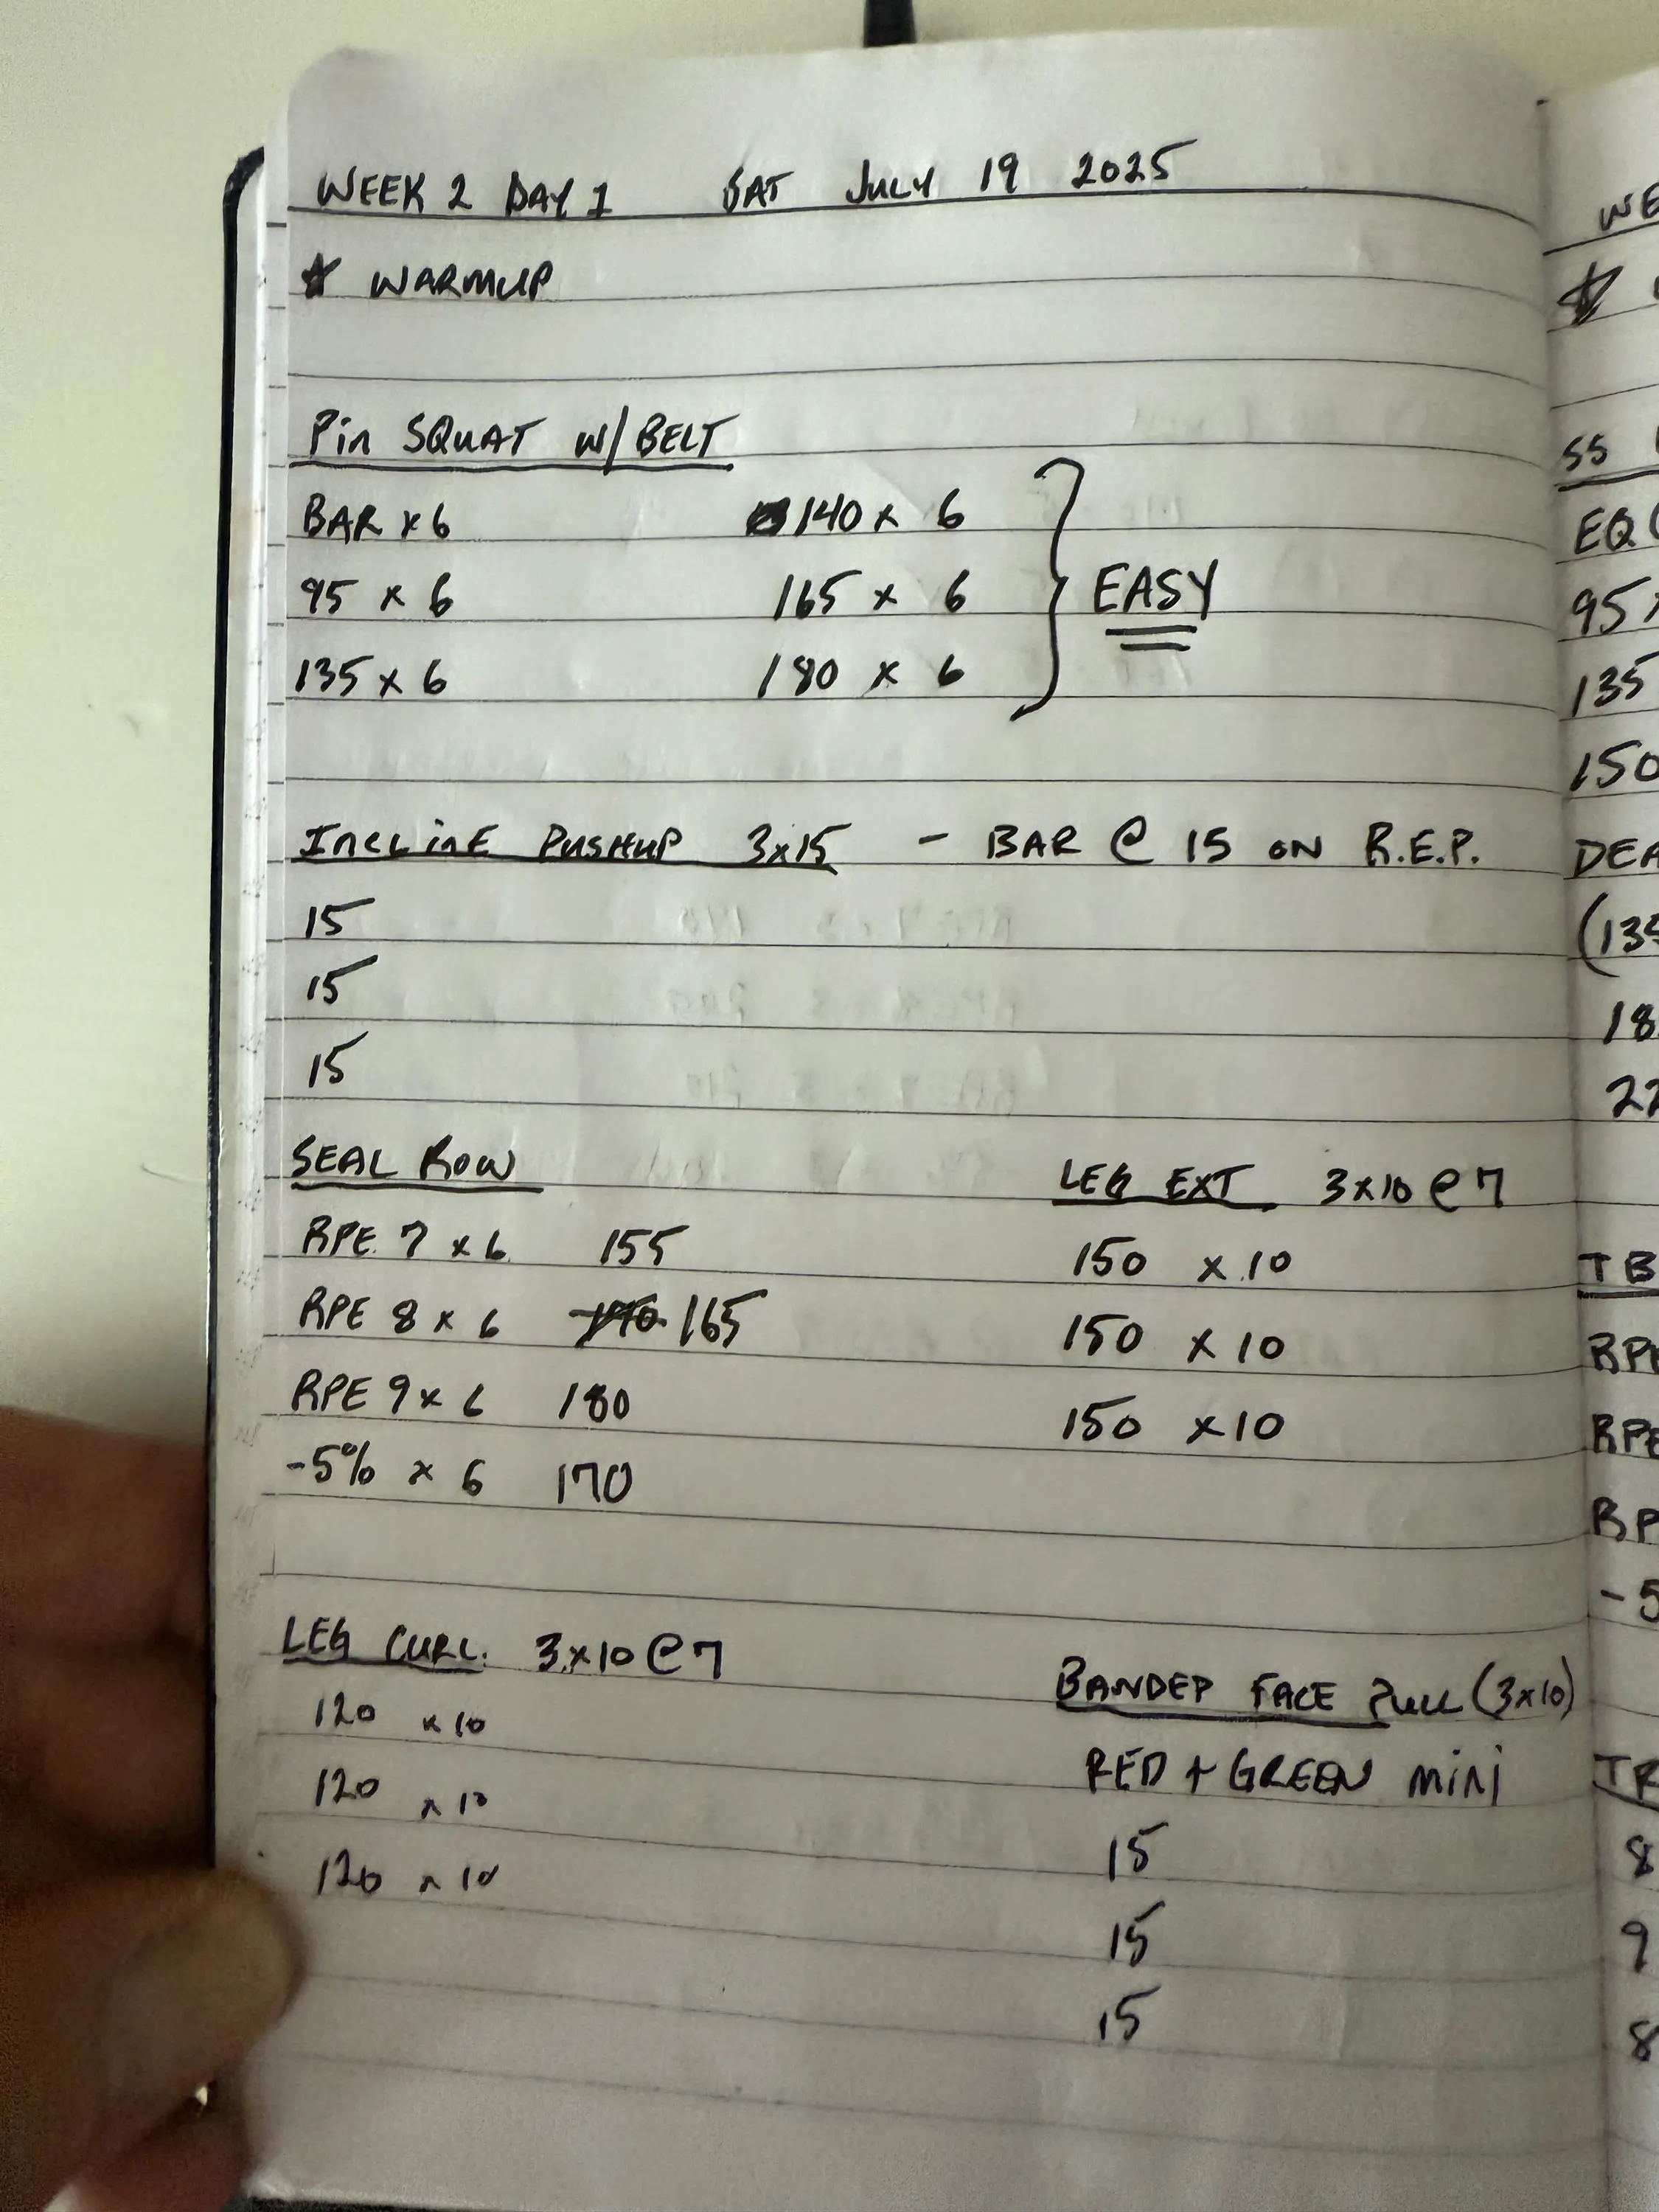 WEEK 2 DAY 1 SAT JULY 19 2025
☆ WARMUP
Pin SQUAT W/BELT
BAR x 6
95 x 6
135 x 6
140 x 6
165 x 6
180 x 6
EASY
INCLINE PUSHUP 3x15 - BAR @ 15 ON R.E.P.
15
15
15
SEAL ROW
RPE 7 x 6 155
RPE 8 x 6 165
RPE 9 x 6 180
-5% x 6 170
LEG EXT 3x10 @ 7
150 x 10
150 x 10
150 x 10
LEG CURL 3x10 @ 7
120 x 10
120 x 10
120 x 10
BANDED FACE PULL (3x10)
RED + GREEN MINI
15
15
15
WE
SS
EQ (
95 x
135
150
DEA
(135
18
22
TB
RPE
RPE
RP
-5
TR
8
9
8